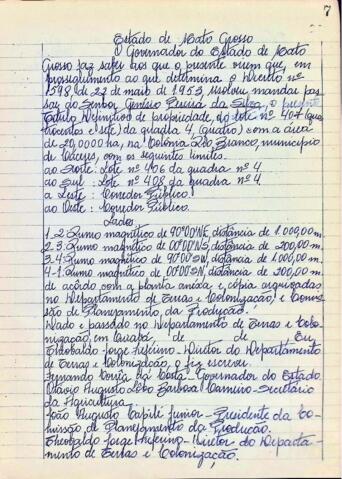 7
Estado de Mato Grosso
O Governador do Estado de Mato
Grosso faz saber aos que o presente virem que, em
prosseguimento ao que determina o Decreto nº
1598, de 22 de maio de 1953, resolveu mandar pas
sar ao Senhor Genésio Pereira da Silva, o presente
Título Definitivo de propriedade, do lote nº 407 (qua
trocentos e sete) da quadra 4, (quatro) com a área
de 20,0000 ha, na Colônia Rio Branco, município
de Cáceres, com os seguintes limites.
ao Norte: Lote nº 406 da quadra nº 4.
ao Sul: Lote nº 408 da quadra nº 4.
a Leste: Corredor Público.
ao Oeste: Corredor Público.
Lados
1-2-Rumo magnético de 90º00'NE, distância de 1.000,00m.
2-3-Rumo magnético de 00º00'NS, distância de 200,00m.
3-4-Rumo magnético de 90º00'SW, distância de 1.000,00m.
4-1-Rumo magnético de 00º00'SN, distância de 200,00m.
de acôrdo com a planta anéxa, e cópia arquivadas
no Departamento de Terras e Colonização, e Comis
são de Planejamento da Produção.
Dado e passado no Departamento de Terras e Colo
nização, em Cuiabá de de Eu
Theobaldo Jorge - Diretor do Departamento
de Terras e Colonização, o fiz escrever.
Fernando Corrêa da Costa - Governador do Estado
Flávio Augusto Lobo Barbosa Carneiro - Secretário
da Agricultura.
João Augusto Capilé Junior - Presidente da Co-
missão de Planejamento da Produção.
Theobaldo Jorge - Diretor do Departa-
mento de Terras e Colonização.